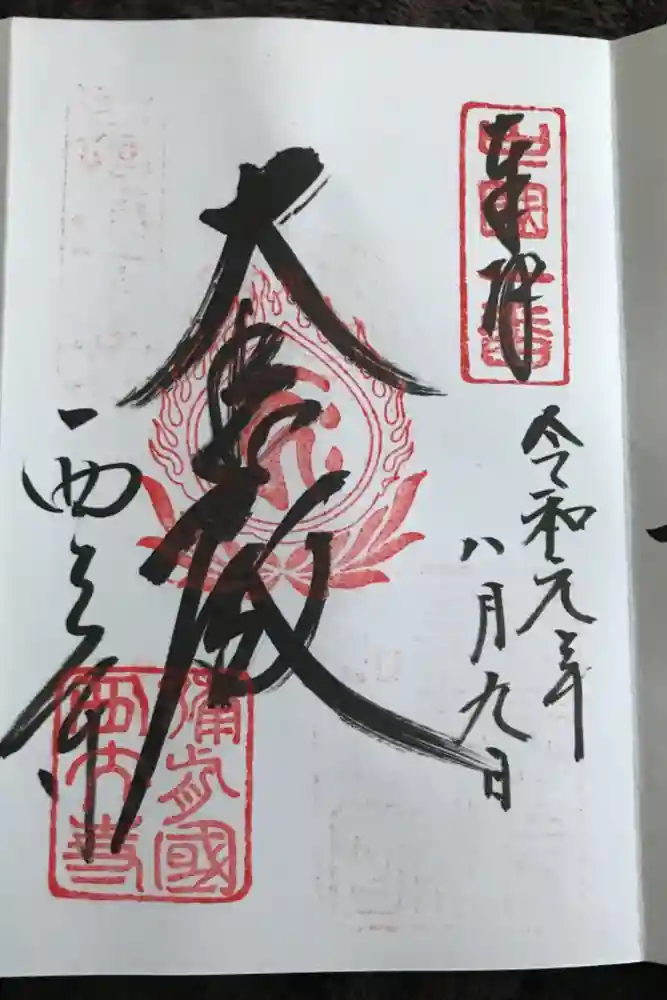 奉拝
中國一番
令和元年
八月九日
大悲殿
西大寺
備前國
西大寺